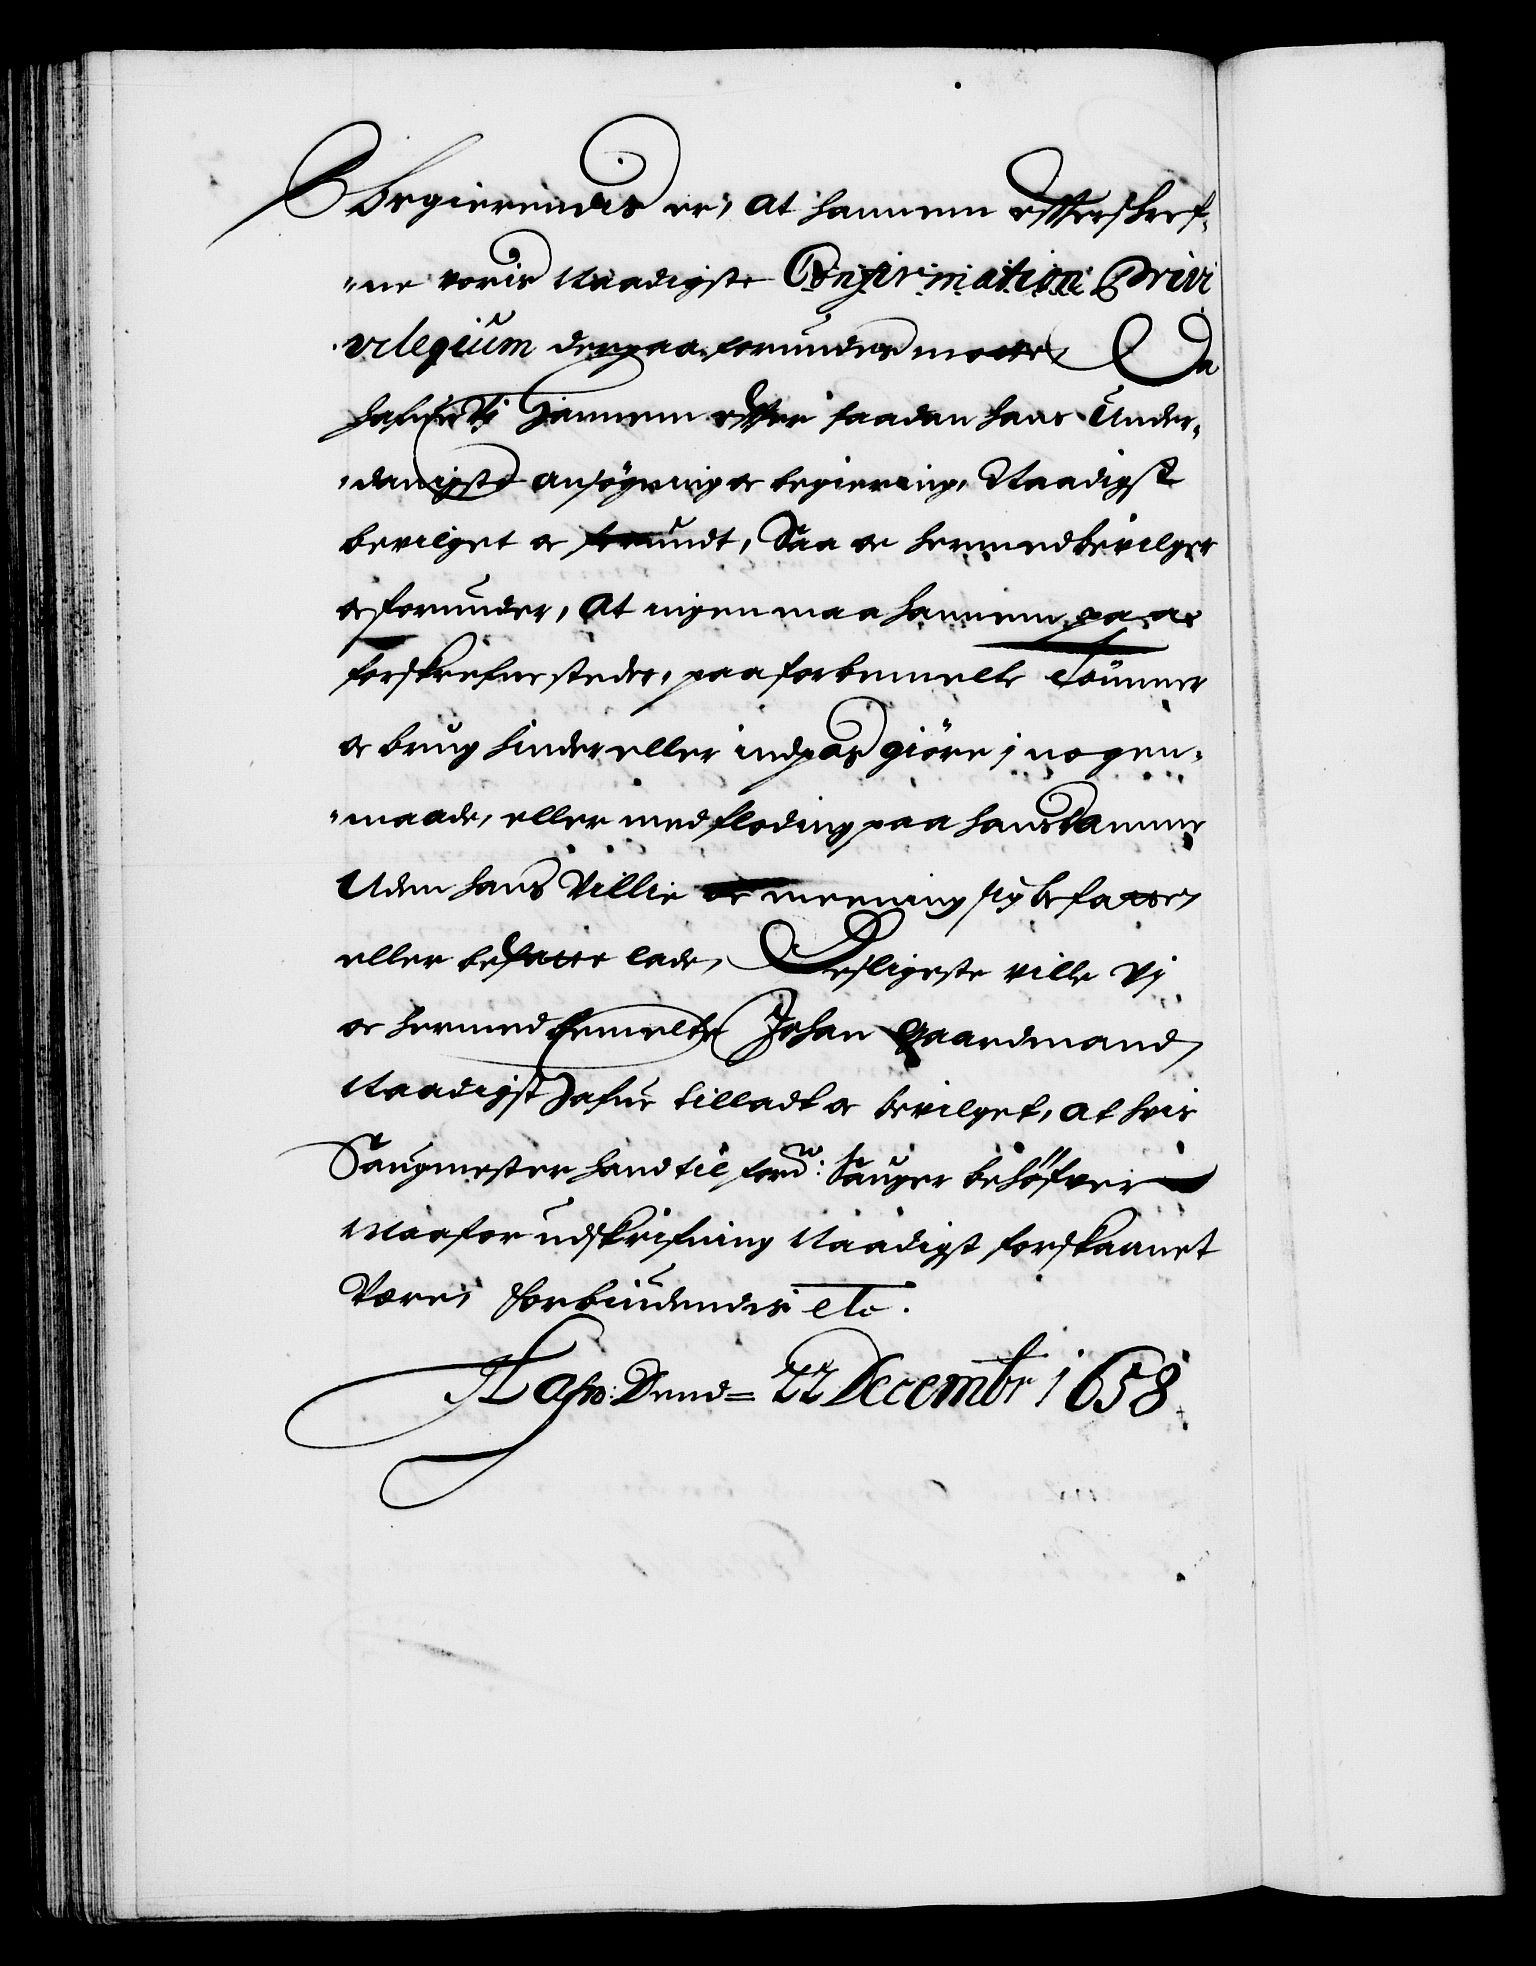 Begierendis er, at hannem effterschref-
-ne voris Naadigste Confirmation Privi
vilegium derpaa forundes motte, Da
hafue Vi hannem effter saadan hans Under-
-danigste ansögning oc begiering, Naadigst
bevilget oc forundt, Saa oc hermed bevilger
oc forunder, At ingen maa hannem paa
forskrefne steder, paa forbemelte
oc brug hinder eller indpas giöre i nogen-
-maade, eller med flöding paa hans damme
Uden hans Villie oc meening sig befatte,
eller befatte lade, Desligeste ville Vj
oc hermed bemelte Johan Gaardmand
Naadigst hafue tilladt oc bevilget, at hvis
Saugmester hand til ford: Sauger behöfver
Maa for udskrifning Naadigst forskaanet
Være, Forbiudendis etc.
Hafn: Dend= 22 Decembr 1658